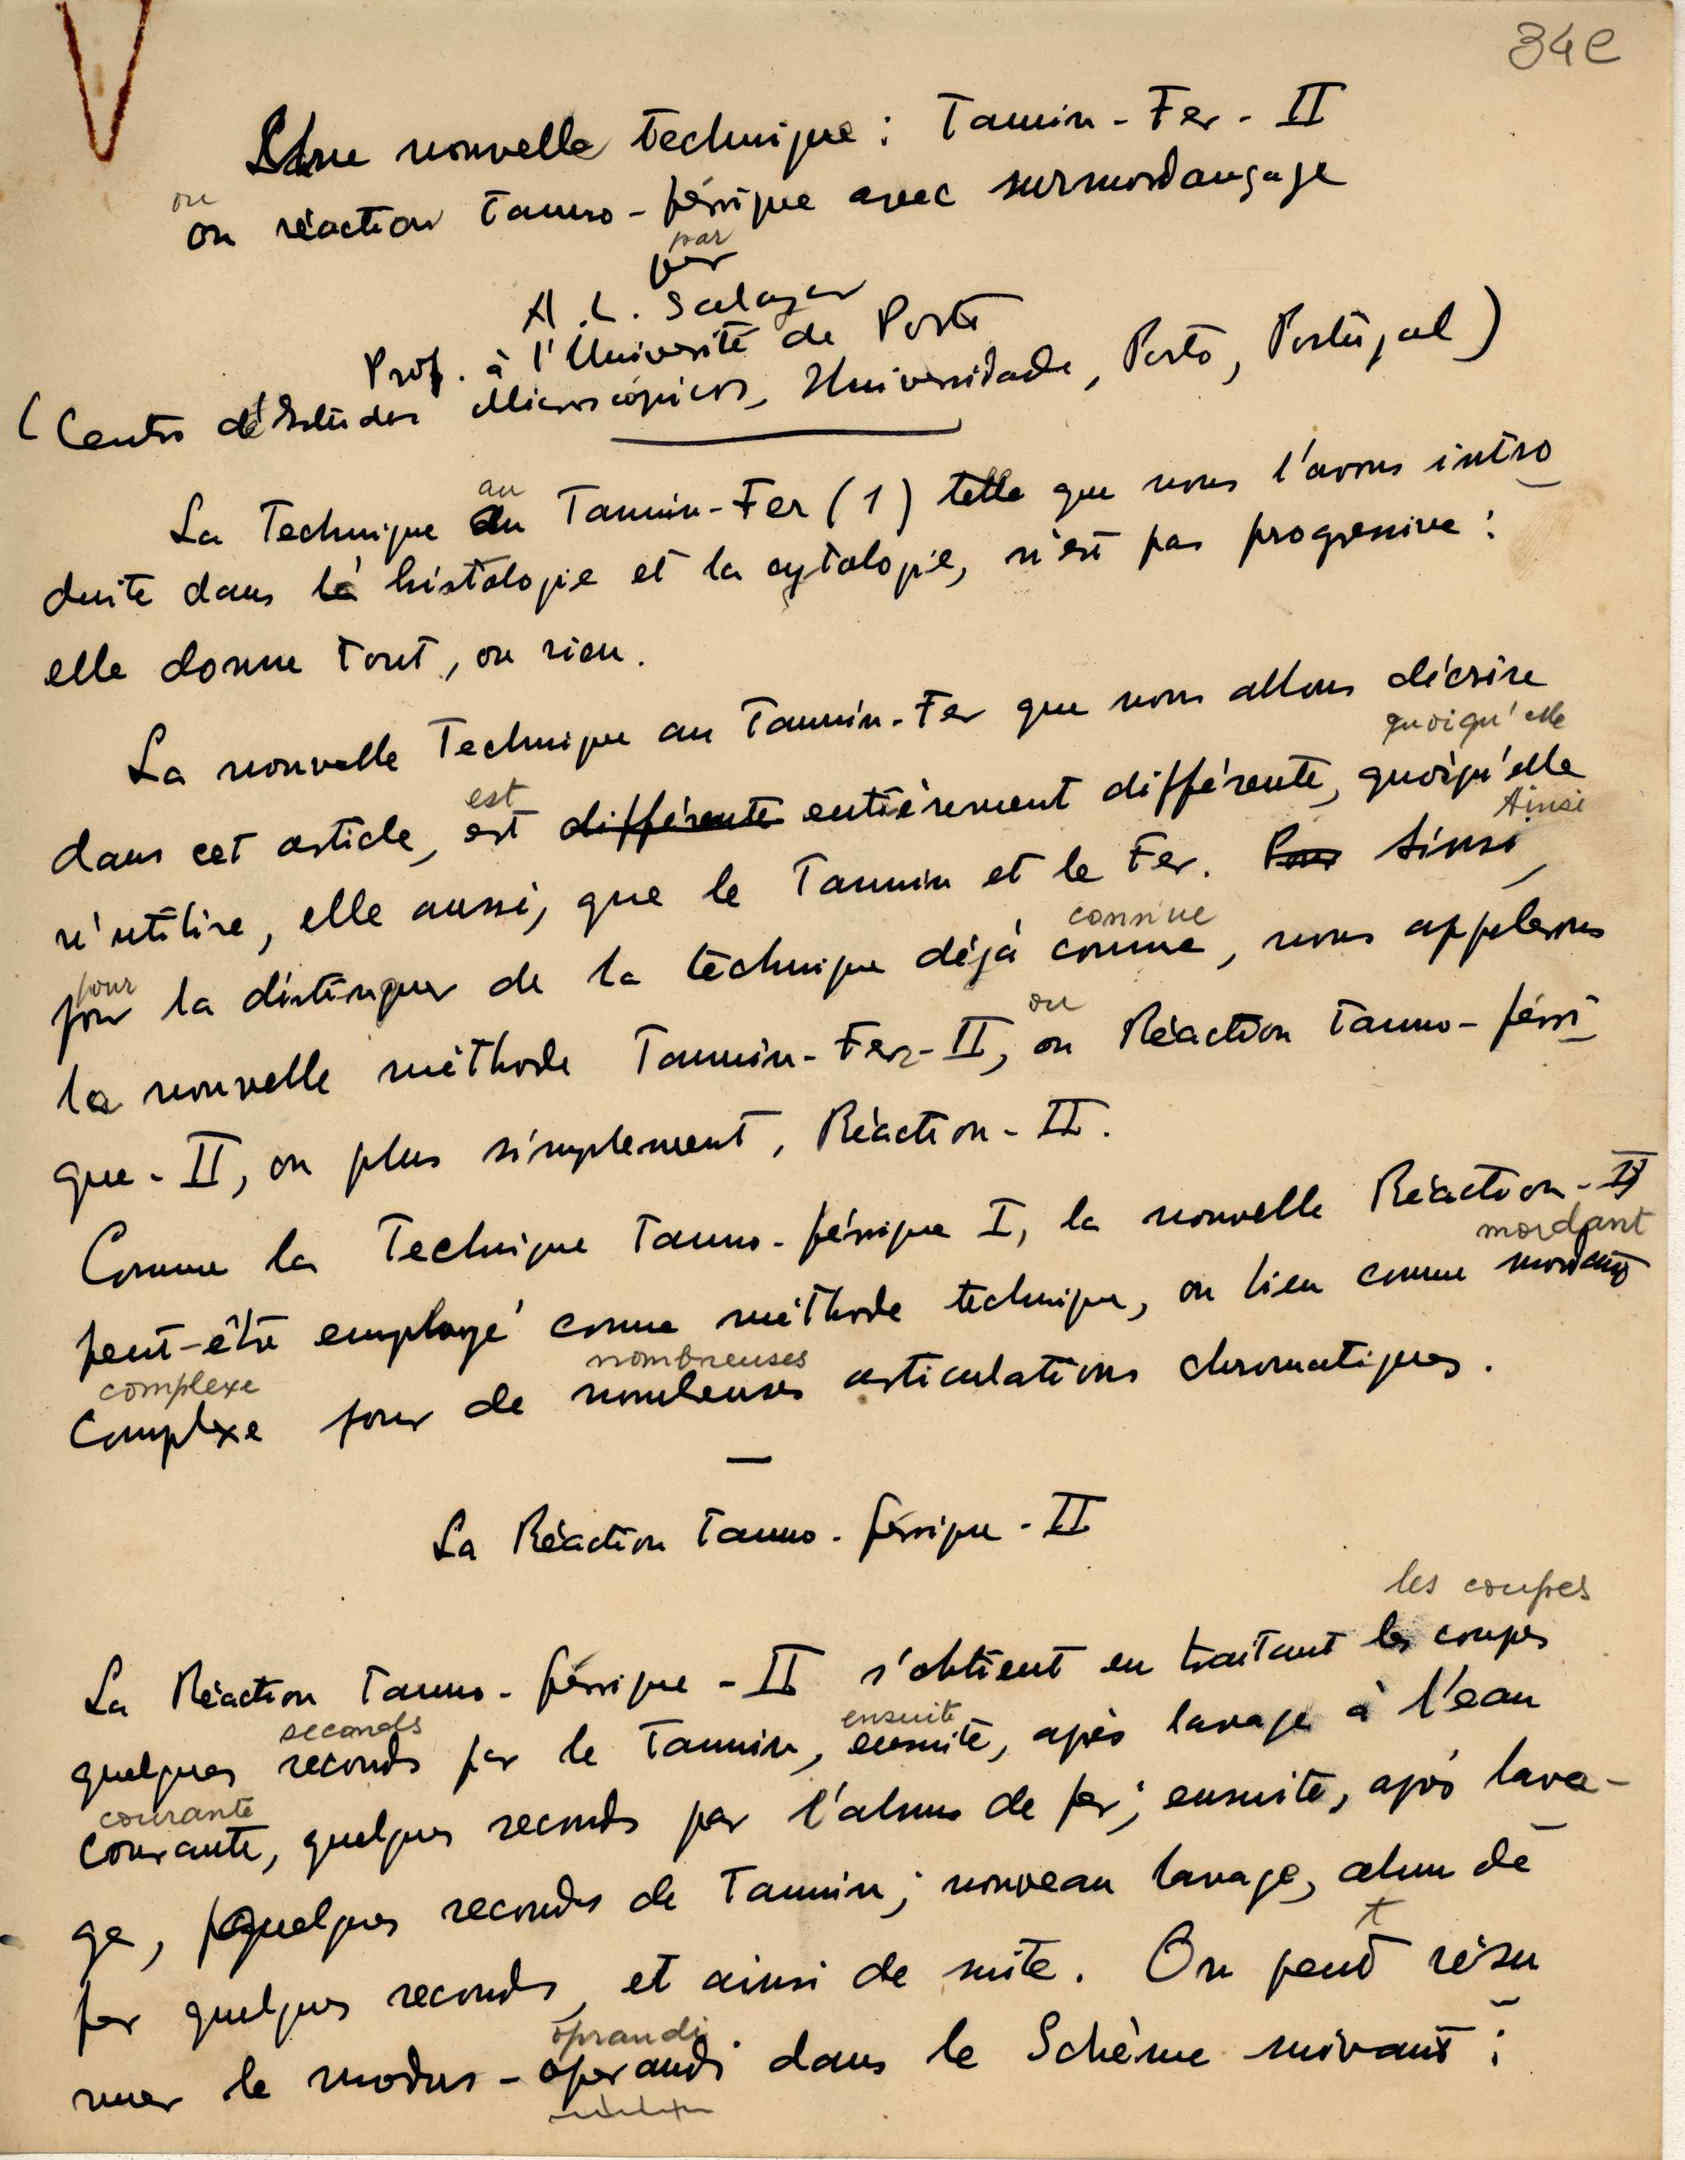 34e
Une nouvelle technique : Tannin - Fer - II
ou
ou réaction Tanno - férrique avec surmordançage
par
par
A. L. Salazar
Prof. à l'Université de Porto
(Centro d'Estudos Microscópicos, Universidade, Porto, Portugal)
au
La Technique au Tannin-Fer (1) telle que nous l'avons intro
duite dans la histologie et la cytologie, n'est pas progressive :
elle donne tout, ou rien.
La nouvelle Technique au Tannin-Fer que nous allons décrire
quoiqu'elle
est
dans cet article, est différente entièrement différente, quoiqu'elle
Ainsi
n'utilise, elle aussi, que le Tannin et le Fer. Pour Ainsi,
connue
pour
pour la distinguer de la technique déjà connue, nous appelerons
ou
la nouvelle méthode Tannin-Fer-II, ou Réaction Tanno-férri
que-II, ou plus simplement, Réaction-II.
Comme la Technique Tanno-férrique I, la nouvelle Réaction-II
mordant
peut-être employé comme méthode technique, ou bien comme mordant
complexe nombreuses
Complexe pour de nombreuses articulations chromatiques.
La Réaction Tanno-férrique-II
les coupes
La Réaction Tanno-férrique-II s'obtient en traitant les coupes
seconds ensuite
quelques seconds par le Tannin, ensuite, après lavage à l'eau
courante
courante, quelques seconds par l'alun de fer; ensuite, après lava-
ge, quelques seconds de Tannin; nouveau lavage, alun de
t
fer quelques seconds, et ainsi de suite. On peut résu
oprandi
mer le modus-operandi dans le Schème suivant :